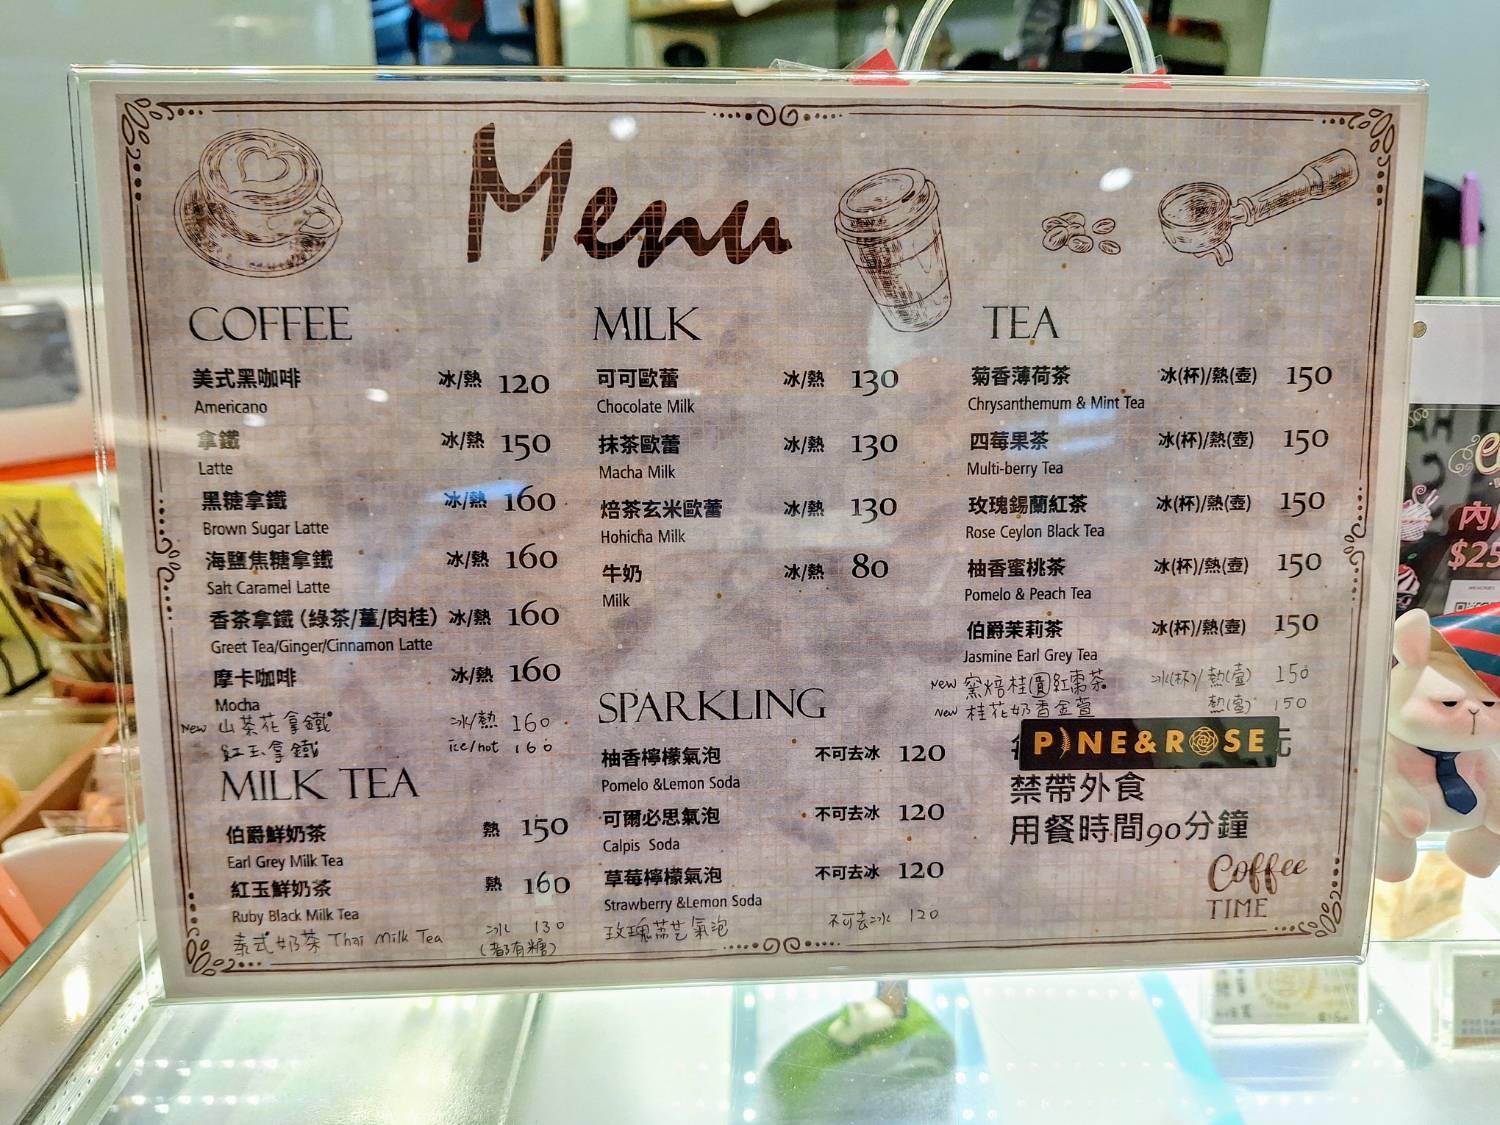 Menu
COFFEE
美式黑咖啡 冰/熱 120
Americano
拿鐵 冰/熱 150
Latte
黑糖拿鐵 冰/熱 160
Brown Sugar Latte
海鹽焦糖拿鐵 冰/熱 160
Salt Caramel Latte
香茶拿鐵(綠茶/薑/肉桂) 冰/熱 160
Greet Tea/Ginger/Cinnamon Latte
摩卡咖啡 冰/熱 160
Mocha
New 山茶花拿鐵 冰/熱 160
紅玉拿鐵 ice/hot 160
MILK TEA
伯爵鮮奶茶 熱 150
Earl Grey Milk Tea
紅玉鮮奶茶 熱 160
Ruby Black Milk Tea
泰式奶茶 Thai Milk Tea 冰 130
(都有糖)
MILK
可可歐蕾 冰/熱 130
Chocolate Milk
抹茶歐蕾 冰/熱 130
Macha Milk
焙茶玄米歐蕾 冰/熱 130
Hohicha Milk
牛奶 冰/熱 80
Milk
SPARKLING
柚香檸檬氣泡 不可去冰 120
Pomelo &Lemon Soda
可爾必思氣泡 不可去冰 120
Calpis Soda
草莓檸檬氣泡 不可去冰 120
Strawberry &Lemon Soda
玫瑰 氣泡 不可去冰 120
TEA
菊香薄荷茶 冰(杯)/熱(壺) 150
Chrysanthemum & Mint Tea
四莓果茶 冰(杯)/熱(壺) 150
Multi-berry Tea
玫瑰錫蘭紅茶 冰(杯)/熱(壺) 150
Rose Ceylon Black Tea
柚香蜜桃茶 冰(杯)/熱(壺) 150
Pomelo & Peach Tea
伯爵茉莉茶 冰(杯)/熱(壺) 150
Jasmine Earl Grey Tea
New 窯焙桂圓紅棗茶 冰(杯)/熱(壺) 150
New 桂花奶香金萱 熱(壺) 150
PINE&ROSE 元
禁帶外食
用餐時間90分鐘
Coffee
TIME
內用
$25